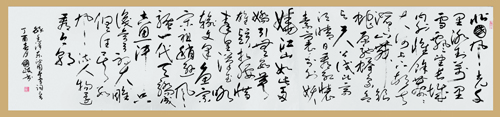 北国风光千
里冰封万里
雪飘望长城
内外惟余莽莽
大河上下顿
失滔滔山舞
银蛇原驰蜡
象欲与天公试比
高须晴日看红装
素裹分外妖
娆江山如此多
娇引无数英
雄竞折腰惜
秦皇汉武略
输文采唐宗
宋祖稍逊风
骚一代天骄成
吉思汗只识
弯弓射大雕
俱往矣数
风流人物还
看今朝
毛泽东沁园春雪词
丁酉